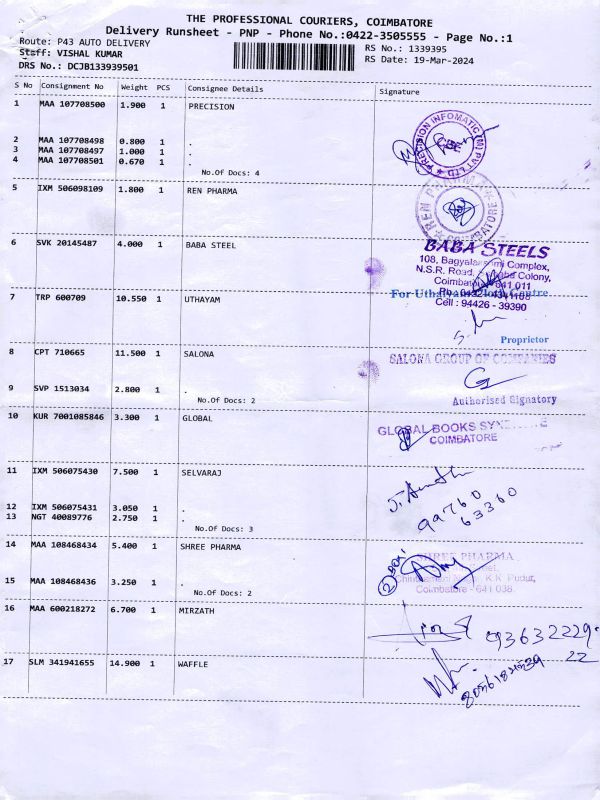 THE PROFESSIONAL COURIERS, COIMBATORE
Delivery Runsheet - PNP - Phone No.:0422-3505555 - Page No.:1
Route: P43 AUTO DELIVERY
RS No.: 1339395
Staff: VISHAL KUMAR
RS Date: 19-Mar-2024
DRS No.: DCJB133939501
S No Consignment No Weight PCS Consignee Details Signature
1 MAA 107708500 1.900 1 PRECISION
PRECISION INFOMATIC (M) PVT LTD
CBE
2 MAA 107708498 0.800 1 .
3 MAA 107708497 1.000 1 .
4 MAA 107708501 0.670 1 .
No.Of Docs: 4
5 IXM 506098109 1.800 1 REN PHARMA
REN PHARMA
COIMBATORE
6 SVK 20145487 4.000 1 BABA STEEL
BABA STEELS
108, Bagyalakshmi Complex,
N.S.R. Road, Colony,
Coimbatore 641 011
7 TRP 600709 10.550 1 UTHAYAM
For Centre
Cell : 94426 - 39390
Proprietor
8 CPT 710665 11.500 1 SALONA
SALONA GROUP OF COMPANIES
9 SVP 1513034 2.800 1 .
No.Of Docs: 2
Authorised Signatory
10 KUR 7001085846 3.300 1 GLOBAL
GLOBAL BOOKS
COIMBATORE
11 IXM 506075430 7.500 1 SELVARAJ
99760
63360
12 IXM 506075431 3.050 1 .
13 NGT 40089776 2.750 1 .
No.Of Docs: 3
14 MAA 108468434 5.400 1 SHREE PHARMA
SHREE PHARMA
K.K. Pudur,
Coimbatore - 641 038.
2
15 MAA 108468436 3.250 1 .
No.Of Docs: 2
16 MAA 600218272 6.700 1 MIRZATH
93632229
22
17 SLM 341941655 14.900 1 WAFFLE